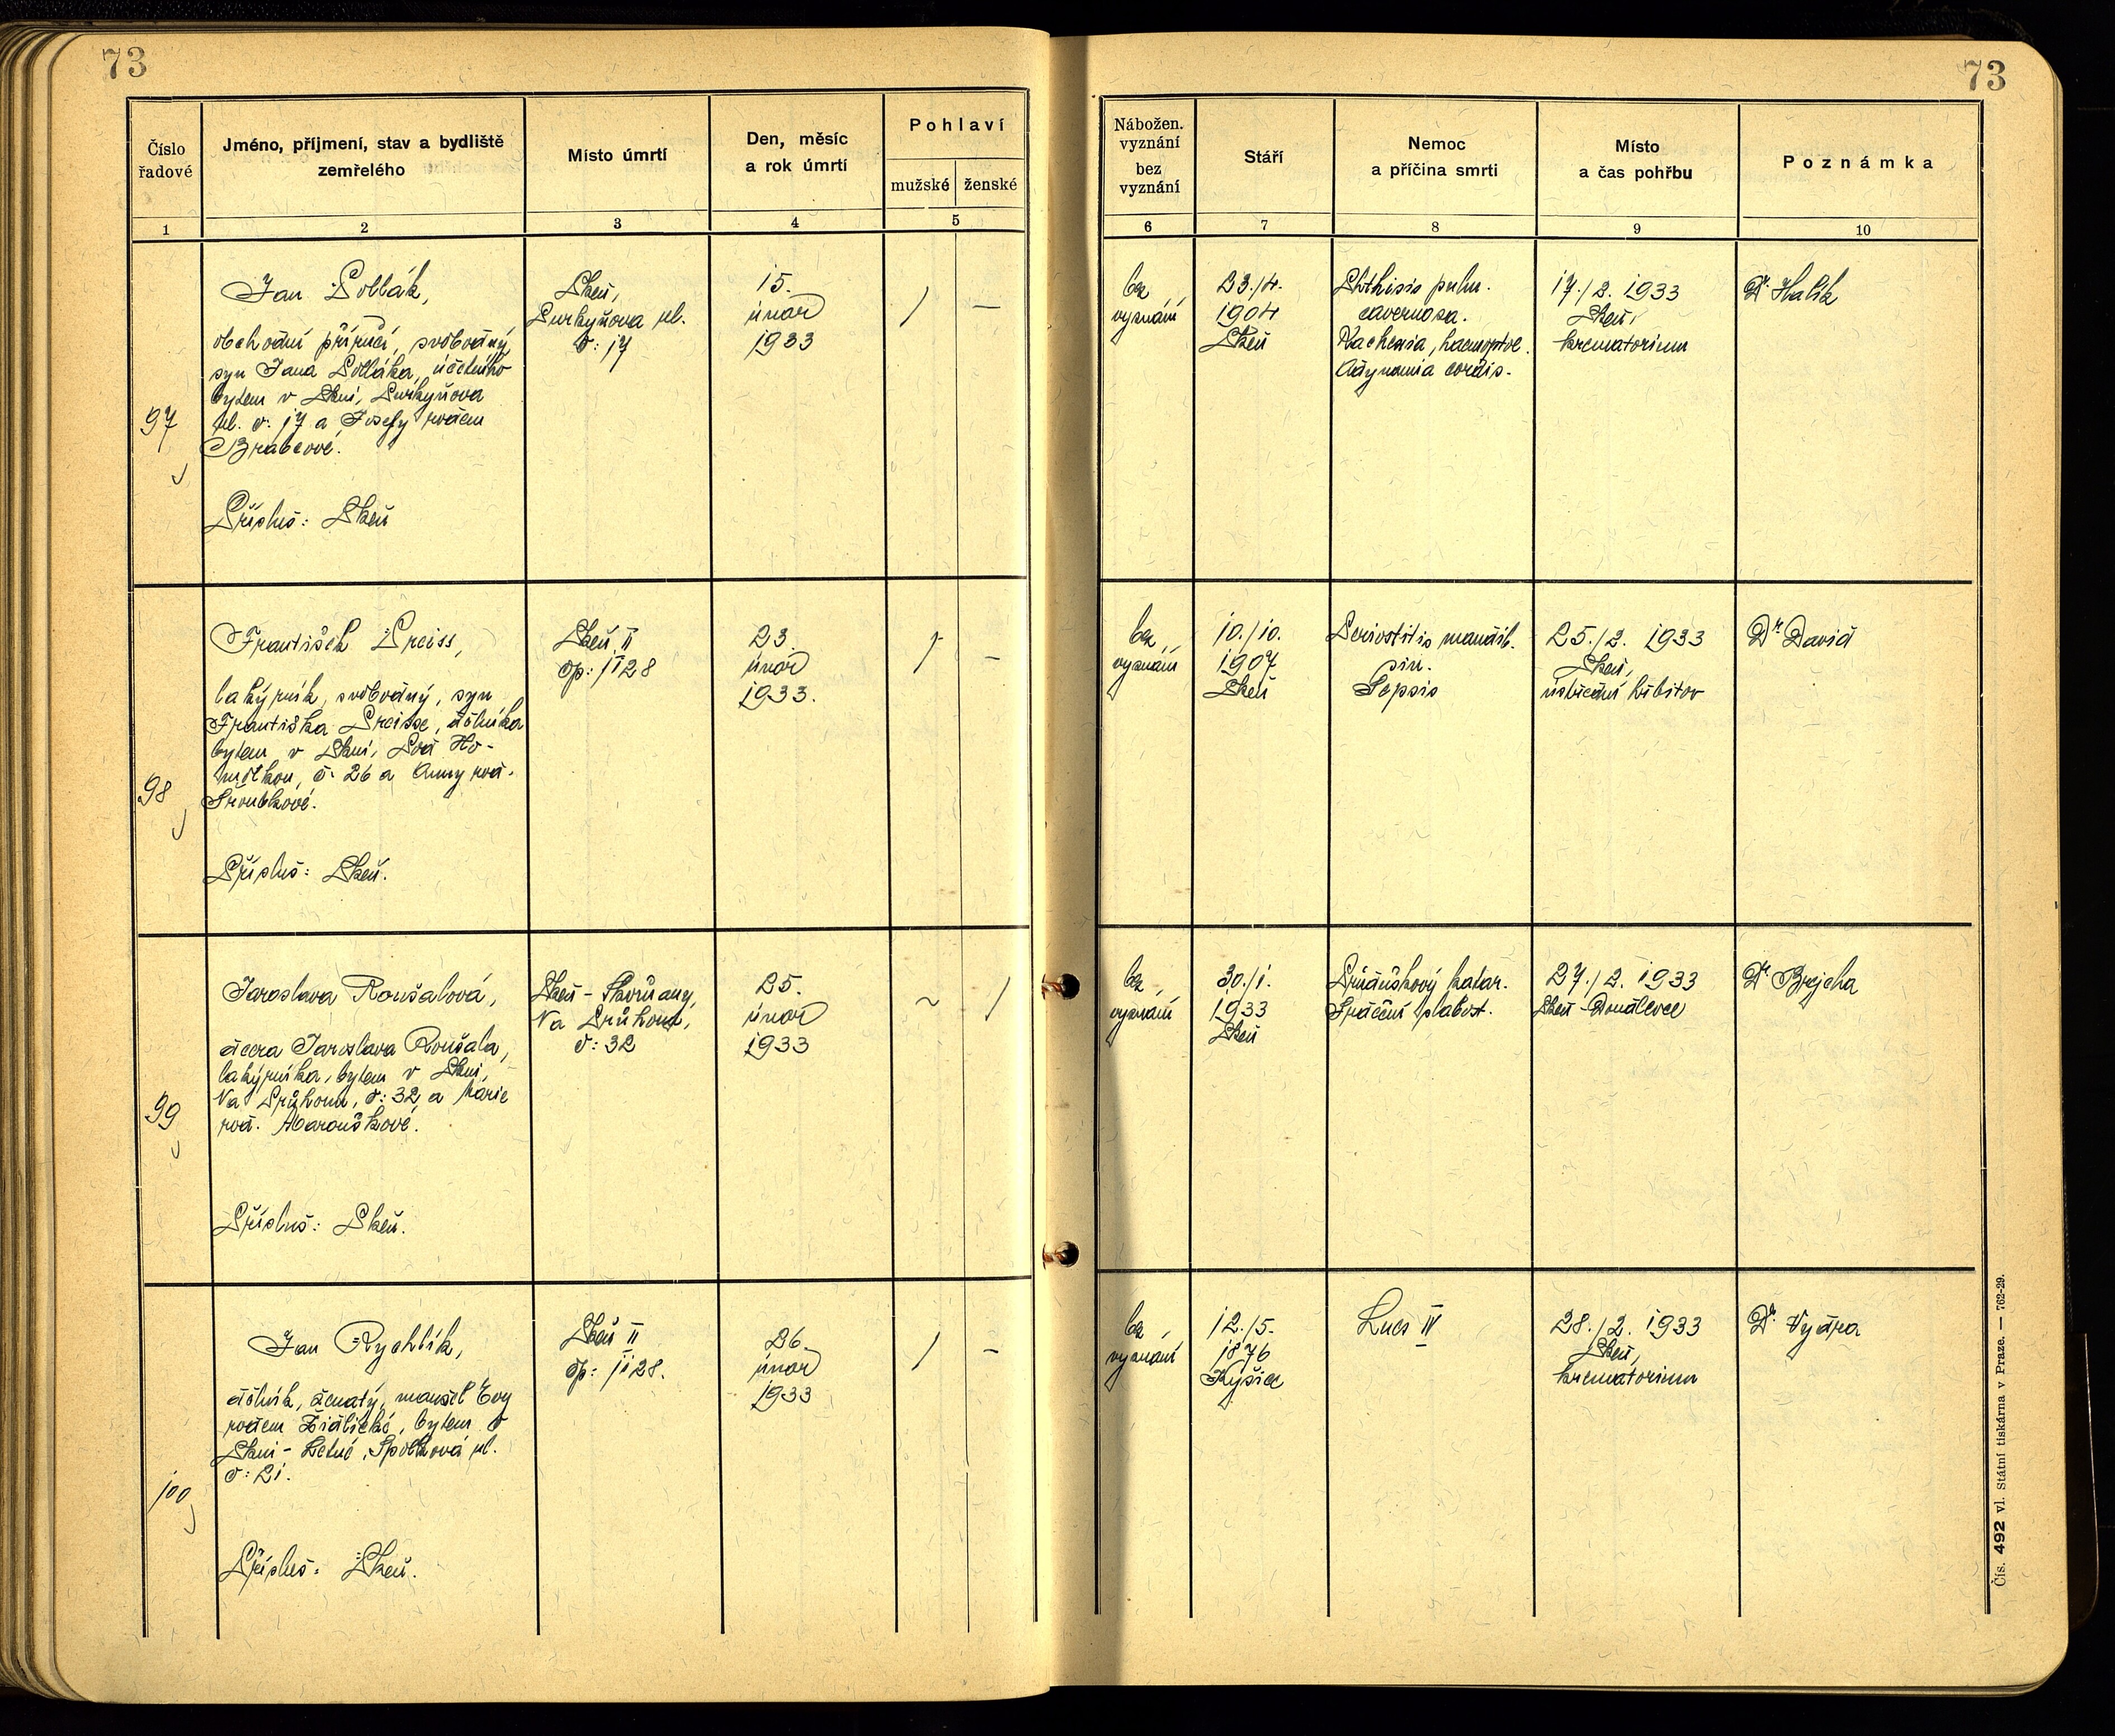 73
73
Číslo řadové
Jméno, příjmení, stav a bydliště zemřelého
Místo úmrtí
Den, měsíc a rok úmrtí
Pohlaví
mužské
ženské
Nábožen. vyznání bez vyznání
Stáří
Nemoc a příčina smrti
Místo a čas pohřbu
Poznámka
1
2
3
4
5
6
7
8
9
10
97
Jan Pollák,
obchodní příručí, svobodný,
syn Jana Polláka, účetního
bytem v Plzni, Purkyňova
ul. č: 17 a Josefy rodem
Brabcové.
Přísluš: Plzeň
Plzeň,
Purkyňova ul.
č: 17
15.
únor
1933
/
—
bez
vyznání
23./4.
1904
Plzeň
Phthisis pulm.
cavernosa.
Kachexia, haemoptoe.
Adynamia cordis.
17./2. 1933
Plzeň,
krematorium
Dr Halík
98
František Preiss,
lakýrník, svobodný, syn
Františka Preisse, dělníka
bytem v Plzni, Pod
č. 26 a Anny rod.
Přísluš: Plzeň.
Plzeň II
čp: 1128
23.
únor
1933.
/
—
bez
vyznání
10./10.
1907
Plzeň
Periostitis mandib.
sin.
Sepsis
25./2. 1933
Plzeň,
ústřední hřbitov
Dr David
99
Jaroslava Roušalová,
dcera Jaroslava Roušala,
lakýrníka, bytem v Plzni,
Na Průhonu, č: 32 a Marie
rod. Marouškové.
Přísluš: Plzeň.
Plzeň - Skvrňany,
Na Průhonu,
č: 32
25.
únor
1933
~
/
bez
vyznání
30./1.
1933
Plzeň
Průduškový katar.
Srdeční slabost.
27./2. 1933
Plzeň - Doudlevce
Dr Brejcha
100
Jan Rychlík,
dělník, ženatý, manžel Evy
rodem Židlické, bytem v
Plzni - Letné, Spolková ul.
č: 21.
Přísluš: Plzeň.
Plzeň II
čp: 1128.
26.
únor
1933
/
—
bez
vyznání
12./5.
1876
Kyšice
Lues IV
28./2. 1933
Plzeň,
krematorium
Dr Vydra
Čís. 492 vl. Státní tiskárna v Praze. — 762-29.